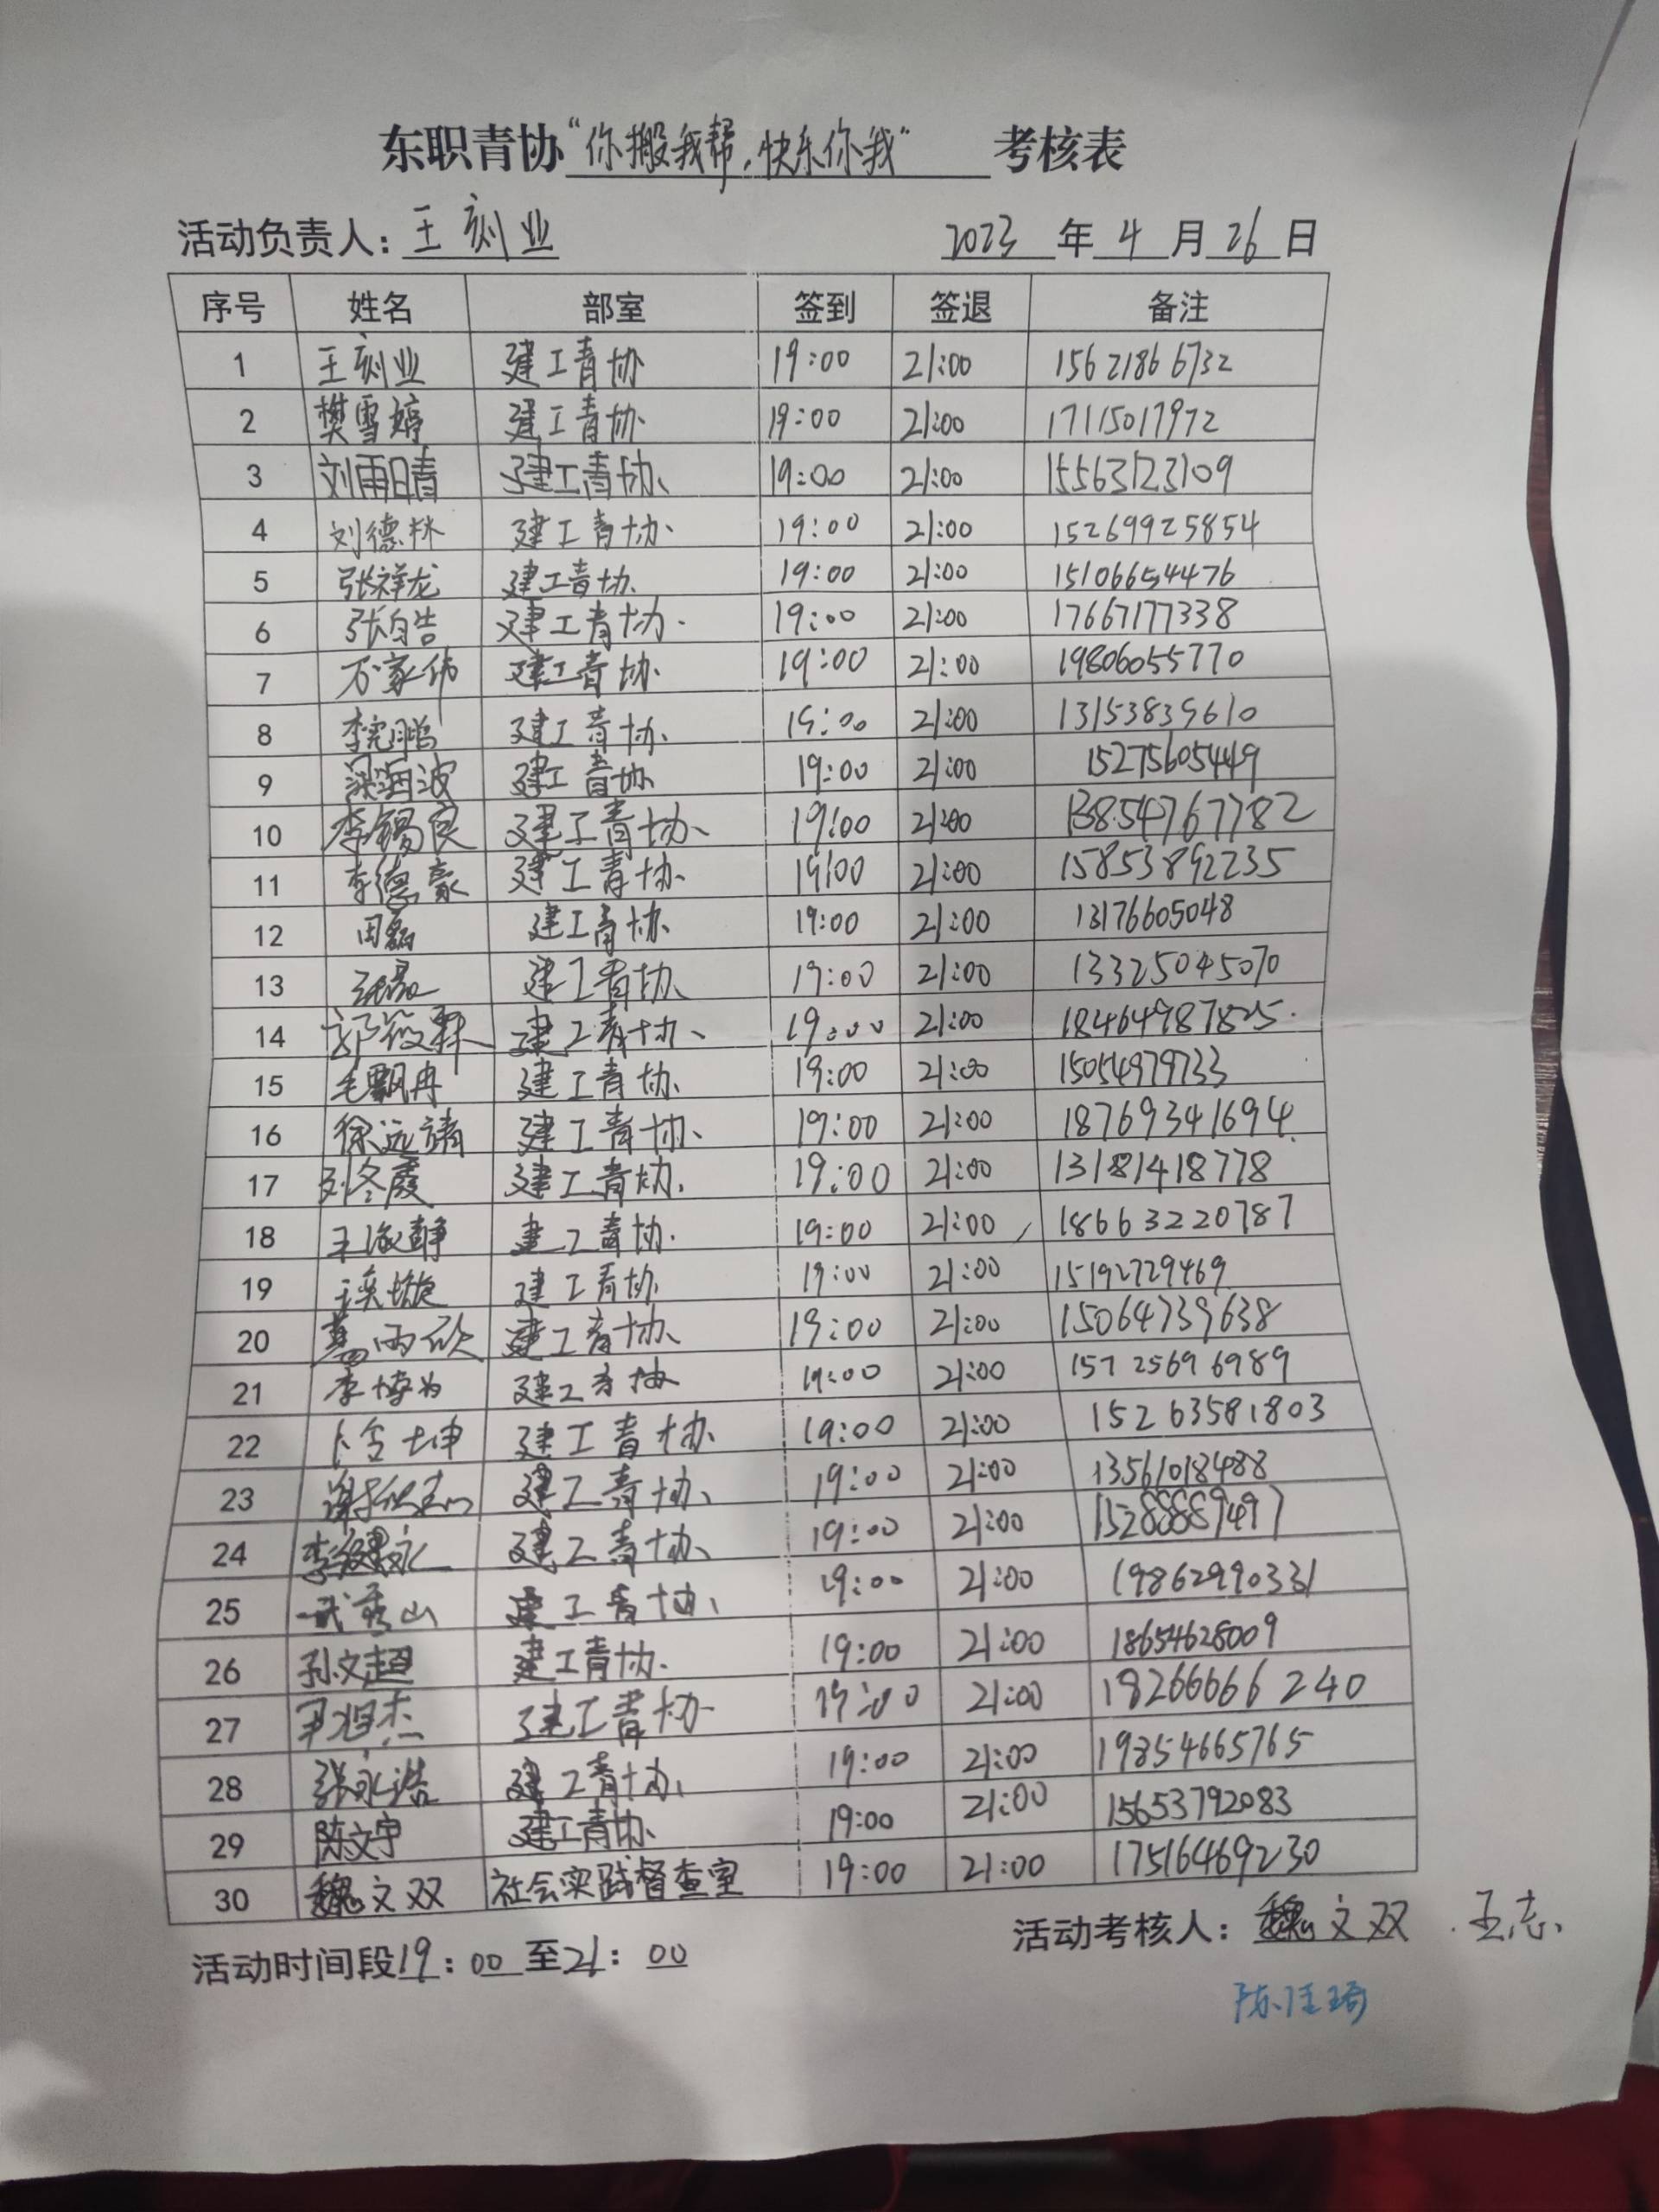 东职青协“你搬我帮,快乐你我”考核表
活动负责人：王刻业 2023年4月26日
序号 姓名 部室 签到 签退 备注
1 王刻业 建工青协 19:00 21:00 15621866732
2 樊雪婷 建工青协 19:00 21:00 17115017972
3 刘雨晴 建工青协 19:00 21:00 15563123109
4 刘德林 建工青协 19:00 21:00 15269925854
5 张祥龙 建工青协 19:00 21:00 15106654476
6 张自浩 建工青协 19:00 21:00 17667177338
7 万家伟 建工青协 19:00 21:00 19806055770
8 李宪鹏 建工青协 19:00 21:00 13153839610
9 梁海波 建工青协 19:00 21:00 15275605449
10 李锡良 建工青协 19:00 21:00 13854767782
11 李德豪 建工青协 19:00 21:00 15853892235
12 周磊 建工青协 19:00 21:00 13176605048
13 建工青协 19:00 21:00 13325045070
14 建工青协 19:00 21:00 18464987825
15 毛飘冉 建工青协 19:00 21:00 15054979733
16 徐远靖 建工青协 19:00 21:00 18769341694
17 刘冬霞 建工青协 19:00 21:00 13181418778
18 王淑静 建工青协 19:00 21:00 18663220787
19 建工青协 19:00 21:00 15192729469
20 葛雨欣 建工青协 19:00 21:00 15064739638
21 李博为 建工青协 19:00 21:00 15725696989
22 卜令坤 建工青协 19:00 21:00 15263581803
23 建工青协 19:00 21:00 13561018488
24 建工青协 19:00 21:00 15288889497
25 武秀山 建工青协 19:00 21:00 19862990331
26 孙文超 建工青协 19:00 21:00 18654628009
27 建工青协 19:00 21:00 18266666240
28 张永浩 建工青协 19:00 21:00 19854665765
29 陈文宇 建工青协 19:00 21:00 15653792083
30 魏文双 社会实践督查室 19:00 21:00 17516469230
活动时间段19：00至21：00 活动考核人：魏文双 王志
陈佳琦